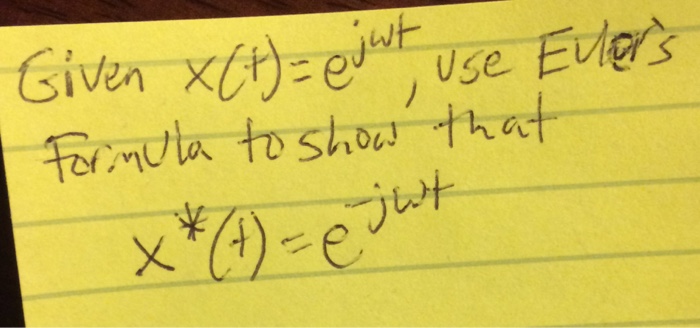 Given x(t)=e^jωt, use Euler's
Formula to show that
x*(t)=e^-jωt